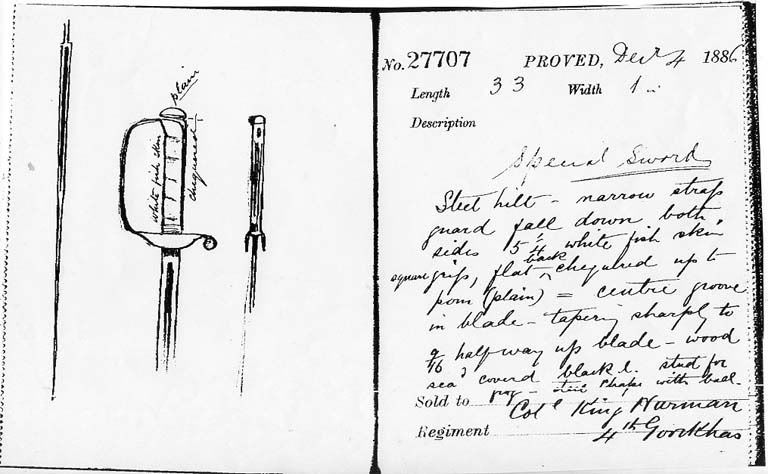 plain
white fish skin
chequered
No. 27707 PROVED, Decr 4 1886
Length 33 Width 1
Description
Special Sword
Steel hilt - narrow strap
guard fall down both
sides 5 1/4 white fish skin
square grips, flat back chequered up to
pom (plain) = centre groove
in blade - tapering sharply to
9/16 half way up blade - wood
sca'd coverd black l. stud for
frog - steel chape with ball.
Sold to Coll King Harman
Regiment 4th Goorkhas